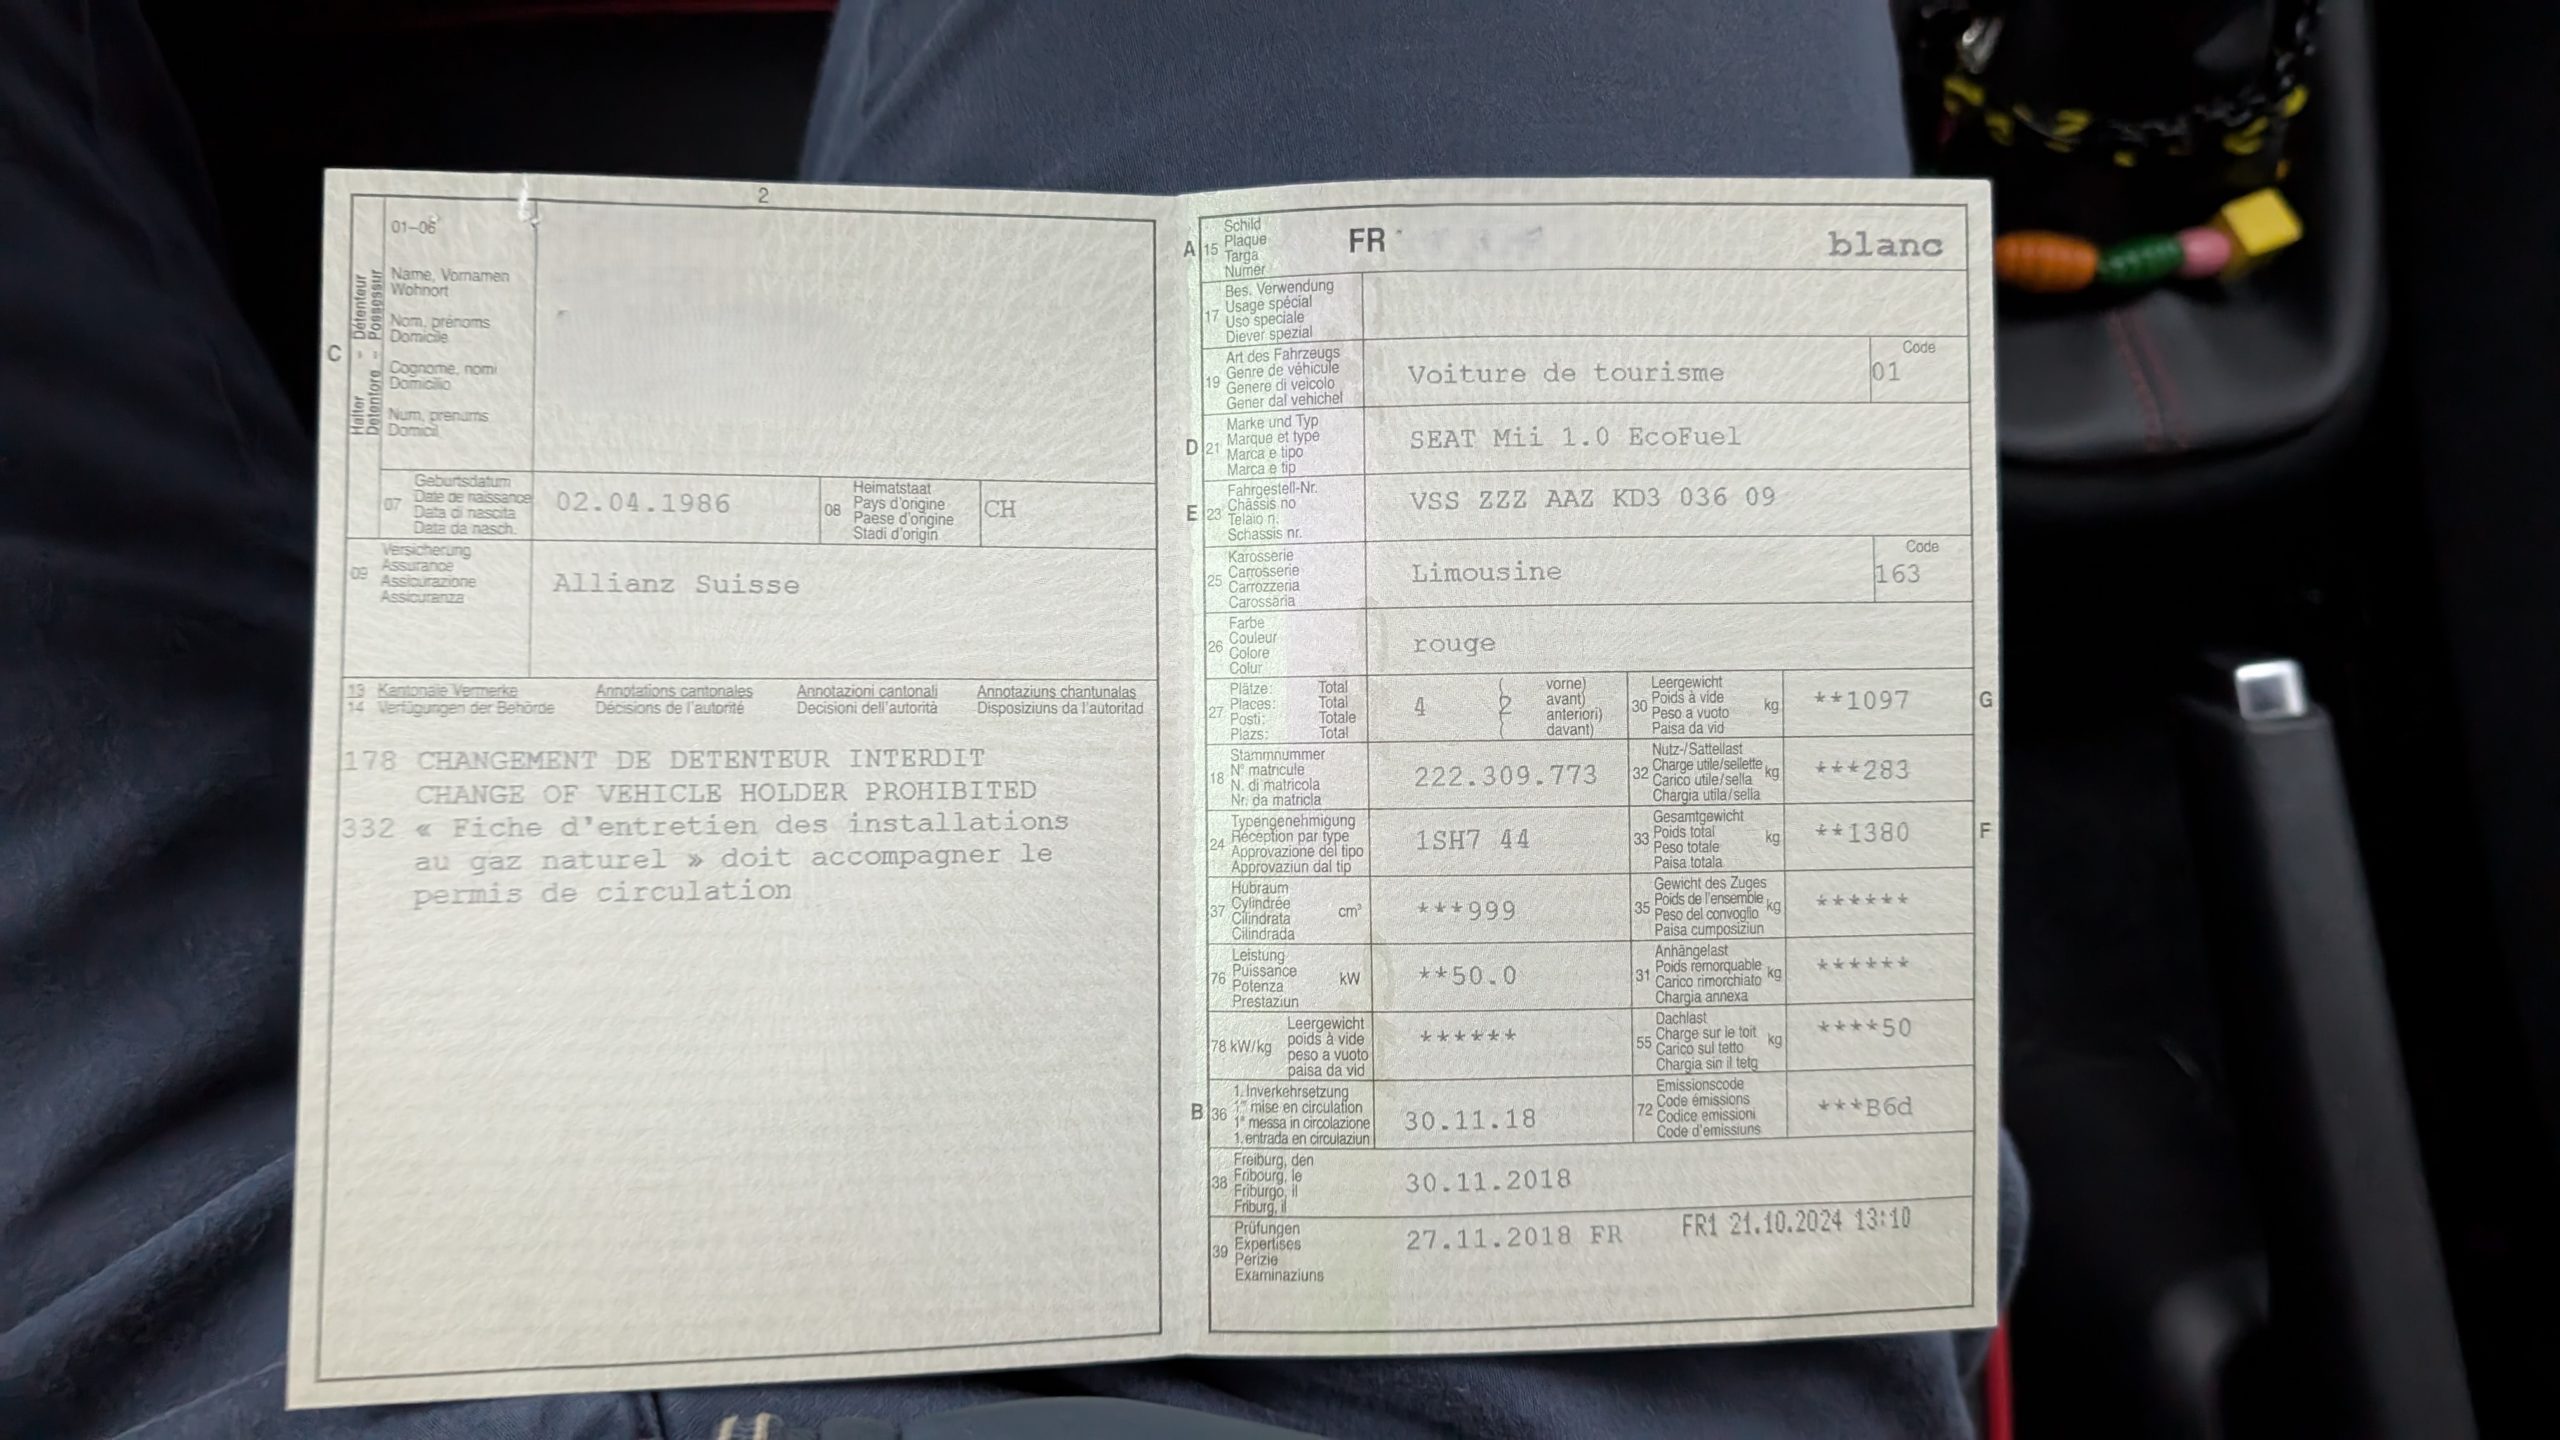 2
01-06
C
Halter - Détenteur
Detentore - Possessur
Name, Vornamen
Wohnort
Nom, prénoms
Domicile
Cognome, nomi
Domicilio
Num, prenums
Domicil
07
Geburtsdatum
Date de naissance
Data di nascita
Data da nasch.
02.04.1986
08
Heimatstaat
Pays d'origine
Paese d'origine
Stadi d'origin
CH
09
Versicherung
Assurance
Assicurazione
Assicuranza
Allianz Suisse
13 Kantonale Vermerke Annotations cantonales Annotazioni cantonali Annotaziuns chantunalas
14 Verfügungen der Behörde Décisions de l'autorité Decisioni dell'autorità Disposiziuns da l'autoritad
178 CHANGEMENT DE DETENTEUR INTERDIT
CHANGE OF VEHICLE HOLDER PROHIBITED
332 « Fiche d'entretien des installations
au gaz naturel » doit accompagner le
permis de circulation
A 15
Schild
Plaque
Targa
Numer
FR
blanc
17
Bes. Verwendung
Usage spécial
Uso speciale
Diever spezial
19
Art des Fahrzeugs
Genre de véhicule
Genere di veicolo
Gener dal vehichel
Voiture de tourisme
Code
01
D 21
Marke und Typ
Marque et type
Marca e tipo
Marca e tip
SEAT Mii 1.0 EcoFuel
E 23
Fahrgestell-Nr.
Châssis no
Telaio n.
Schassis nr.
VSS ZZZ AAZ KD3 036 09
25
Karosserie
Carrosserie
Carrozzeria
Carossaria
Limousine
Code
163
26
Farbe
Couleur
Colore
Colur
rouge
27
Plätze: Total
Places: Total
Posti: Totale
Plazs: Total
4
( 2
vorne)
avant)
anteriori)
davant)
30
Leergewicht
Poids à vide
Peso a vuoto
Paisa da vid
kg
**1097
G
18
Stammnummer
N° matricule
N. di matricola
Nr. da matricla
222.309.773
32
Nutz-/Sattellast
Charge utile/sellette
Carico utile/sella
Chargia utila/sella
kg
***283
24
Typengenehmigung
Réception par type
Approvazione del tipo
Approvaziun dal tip
1SH7 44
33
Gesamtgewicht
Poids total
Peso totale
Paisa totala
kg
**1380
F
37
Hubraum
Cylindrée
Cilindrata
Cilindrada
cm³
***999
35
Gewicht des Zuges
Poids de l'ensemble
Peso del convoglio
Paisa cumposiziun
kg
******
76
Leistung
Puissance
Potenza
Prestaziun
kW
**50.0
31
Anhängelast
Poids remorquable
Carico rimorchiato
Chargia annexa
kg
******
78 kW/kg
Leergewicht
poids à vide
peso a vuoto
paisa da vid
******
55
Dachlast
Charge sur le toit
Carico sul tetto
Chargia sin il tetg
kg
****50
B 36
1. Inverkehrsetzung
1re mise en circulation
1a messa in circolazione
1. entrada en circulaziun
30.11.18
72
Emissionscode
Code émissions
Codice emissioni
Code d'emissiuns
***B6d
38
Freiburg, den
Fribourg, le
Friburgo, il
Friburg, il
30.11.2018
39
Prüfungen
Expertises
Perizie
Examinaziuns
27.11.2018 FR
FR1 21.10.2024 13:10